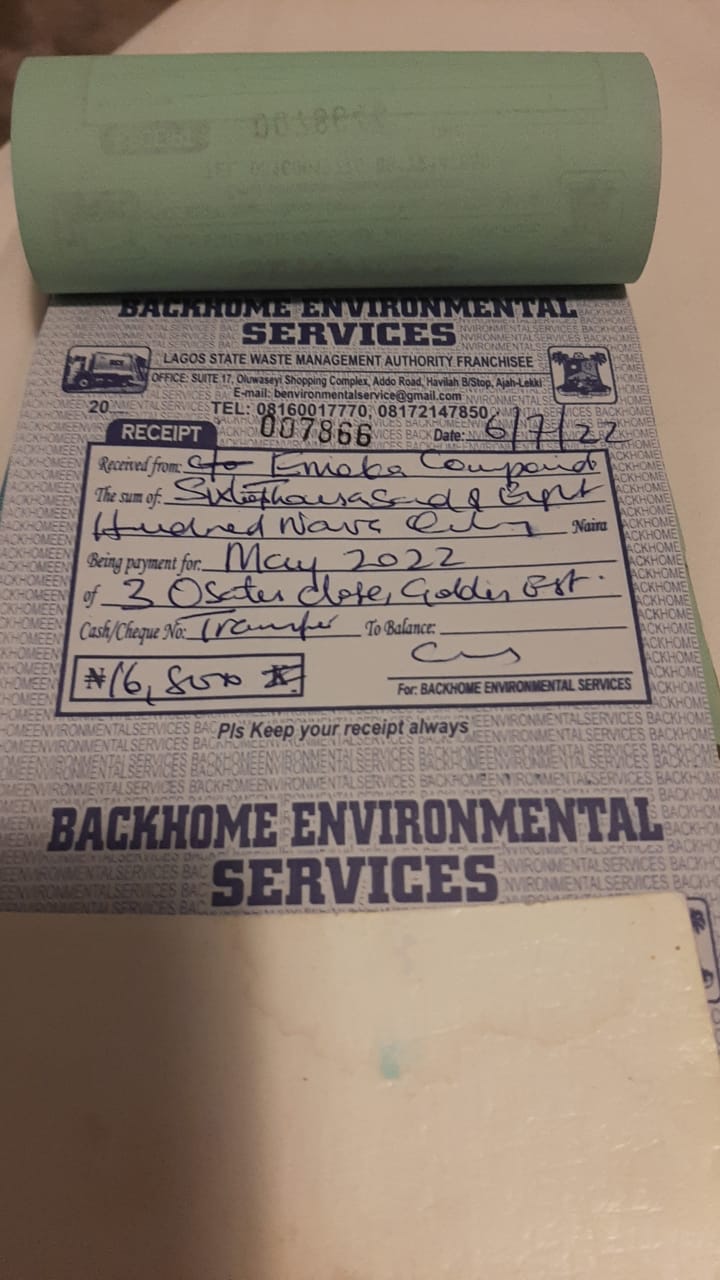 BACKHOME ENVIRONMENTAL
SERVICES
LAGOS STATE WASTE MANAGEMENT AUTHORITY FRANCHISEE
OFFICE: SUITE 17, Oluwaseyi Shopping Complex, Addo Road, Havilah B/Stop, Ajah-Lekki
E-mail: benvironmentalservice@gmail.com
20
TEL: 08160017770, 08172147850
RECEIPT 007866 Date: 6/7/22
Received from: c/o Emeka Compound
The sum of: Thousand & Eight
Hundred Naira Only Naira
Being payment for: May 2022
of 3 close, Golden Est.
Cash/Cheque No: Transfer To Balance:
₦16,800 K
For: BACKHOME ENVIRONMENTAL SERVICES
Pls Keep your receipt always
BACKHOME ENVIRONMENTAL
SERVICES